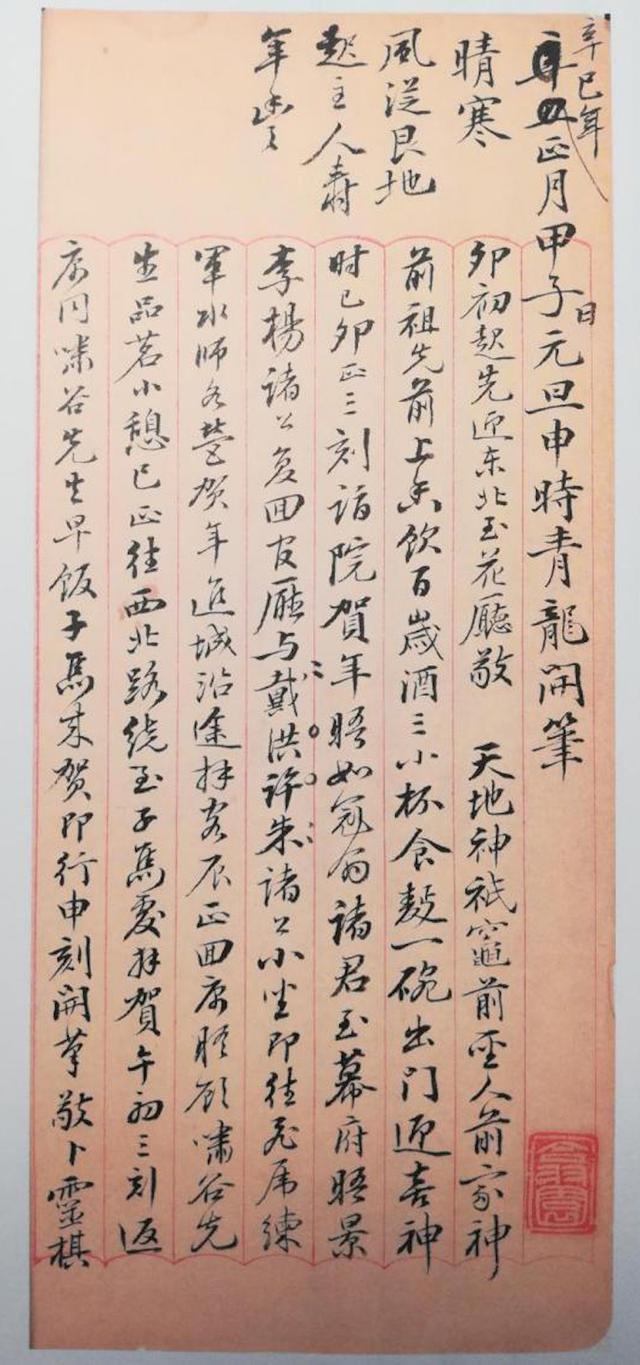 辛巳年
正月甲子日元旦申時青龍開筆
晴寒
風從艮地
起主人壽
年豊
卯初起先迎东北玉花廳敬 天地神祇竈前聖人前家神
前祖先前上香飲百歲酒三小杯食麪一碗出門迎喜神
时已卯正三刻詣院賀年晤如冠翁諸君至幕府晤景
李楊諸公复回官廳与戴洪許朱諸公小坐即往虎席練
軍水师各營贺年進城沿途拜客辰正回寓照顧嘯谷先
生品茗小憩巳正往西北路绕至子馬處拜賀午初三刻返
寓同嘯谷先生早饭子馬来贺即行申刻開筆敬卜靈棋